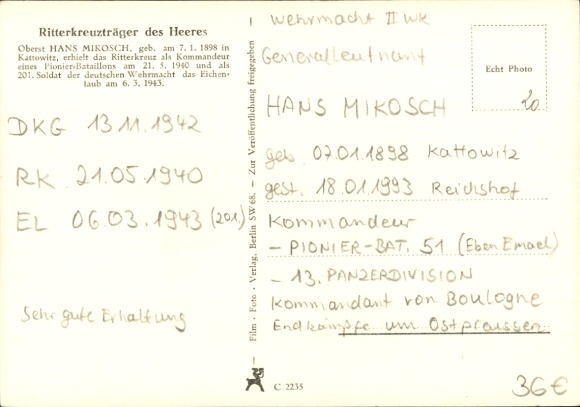 Ritterkreuzträger des Heeres
Oberst HANS MIKOSCH, geb. am 7. 1. 1898 in
Kattowitz, erhielt das Ritterkreuz als Kommandeur
eines Pionier-Bataillons am 21. 5. 1940 und als
201. Soldat der deutschen Wehrmacht das Eichen-
laub am 6. 3. 1943.
DKG 13.11.1942
RK 21.05.1940
EL 06.03.1943 (201.)
Sehr gute Erhaltung
Film - Foto - Verlag, Berlin SW 68. — Zur Veröffentlichung freigegeben
C 2235
Wehrmacht II WK
Generalleutnant
Echt Photo
20
HANS MIKOSCH
geb. 07.01.1898 Kattowitz
gest. 18.01.1993 Reichshof
Kommandeur
- PIONIER-BAT. 51 (Eben Emael)
- 13. PANZERDIVISION
Kommandant von Boulogne
Endkämpfe um Ostpreussen
36€